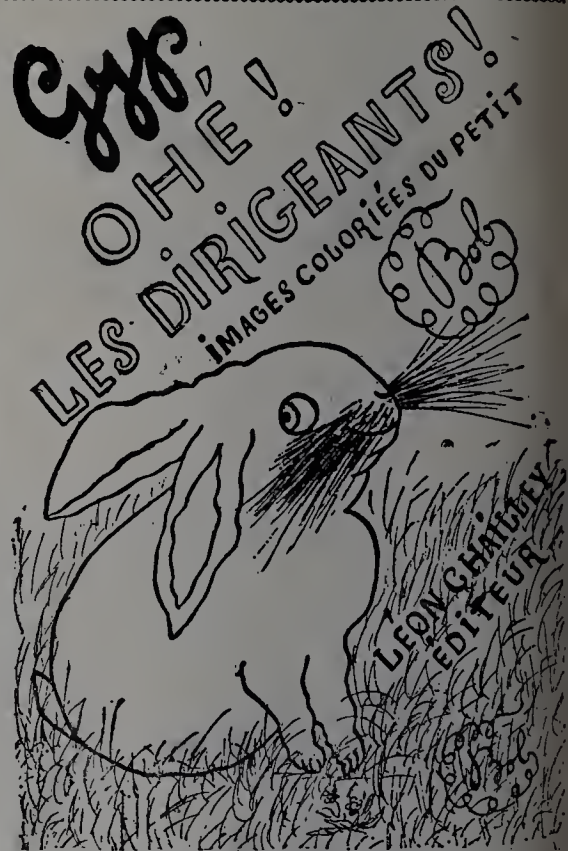 Gyp
OHÉ!
LES DIRIGEANTS!
IMAGES COLORIÉES DU PETIT
Bob
LÉON CHAILLEY
ÉDITEUR
Bob